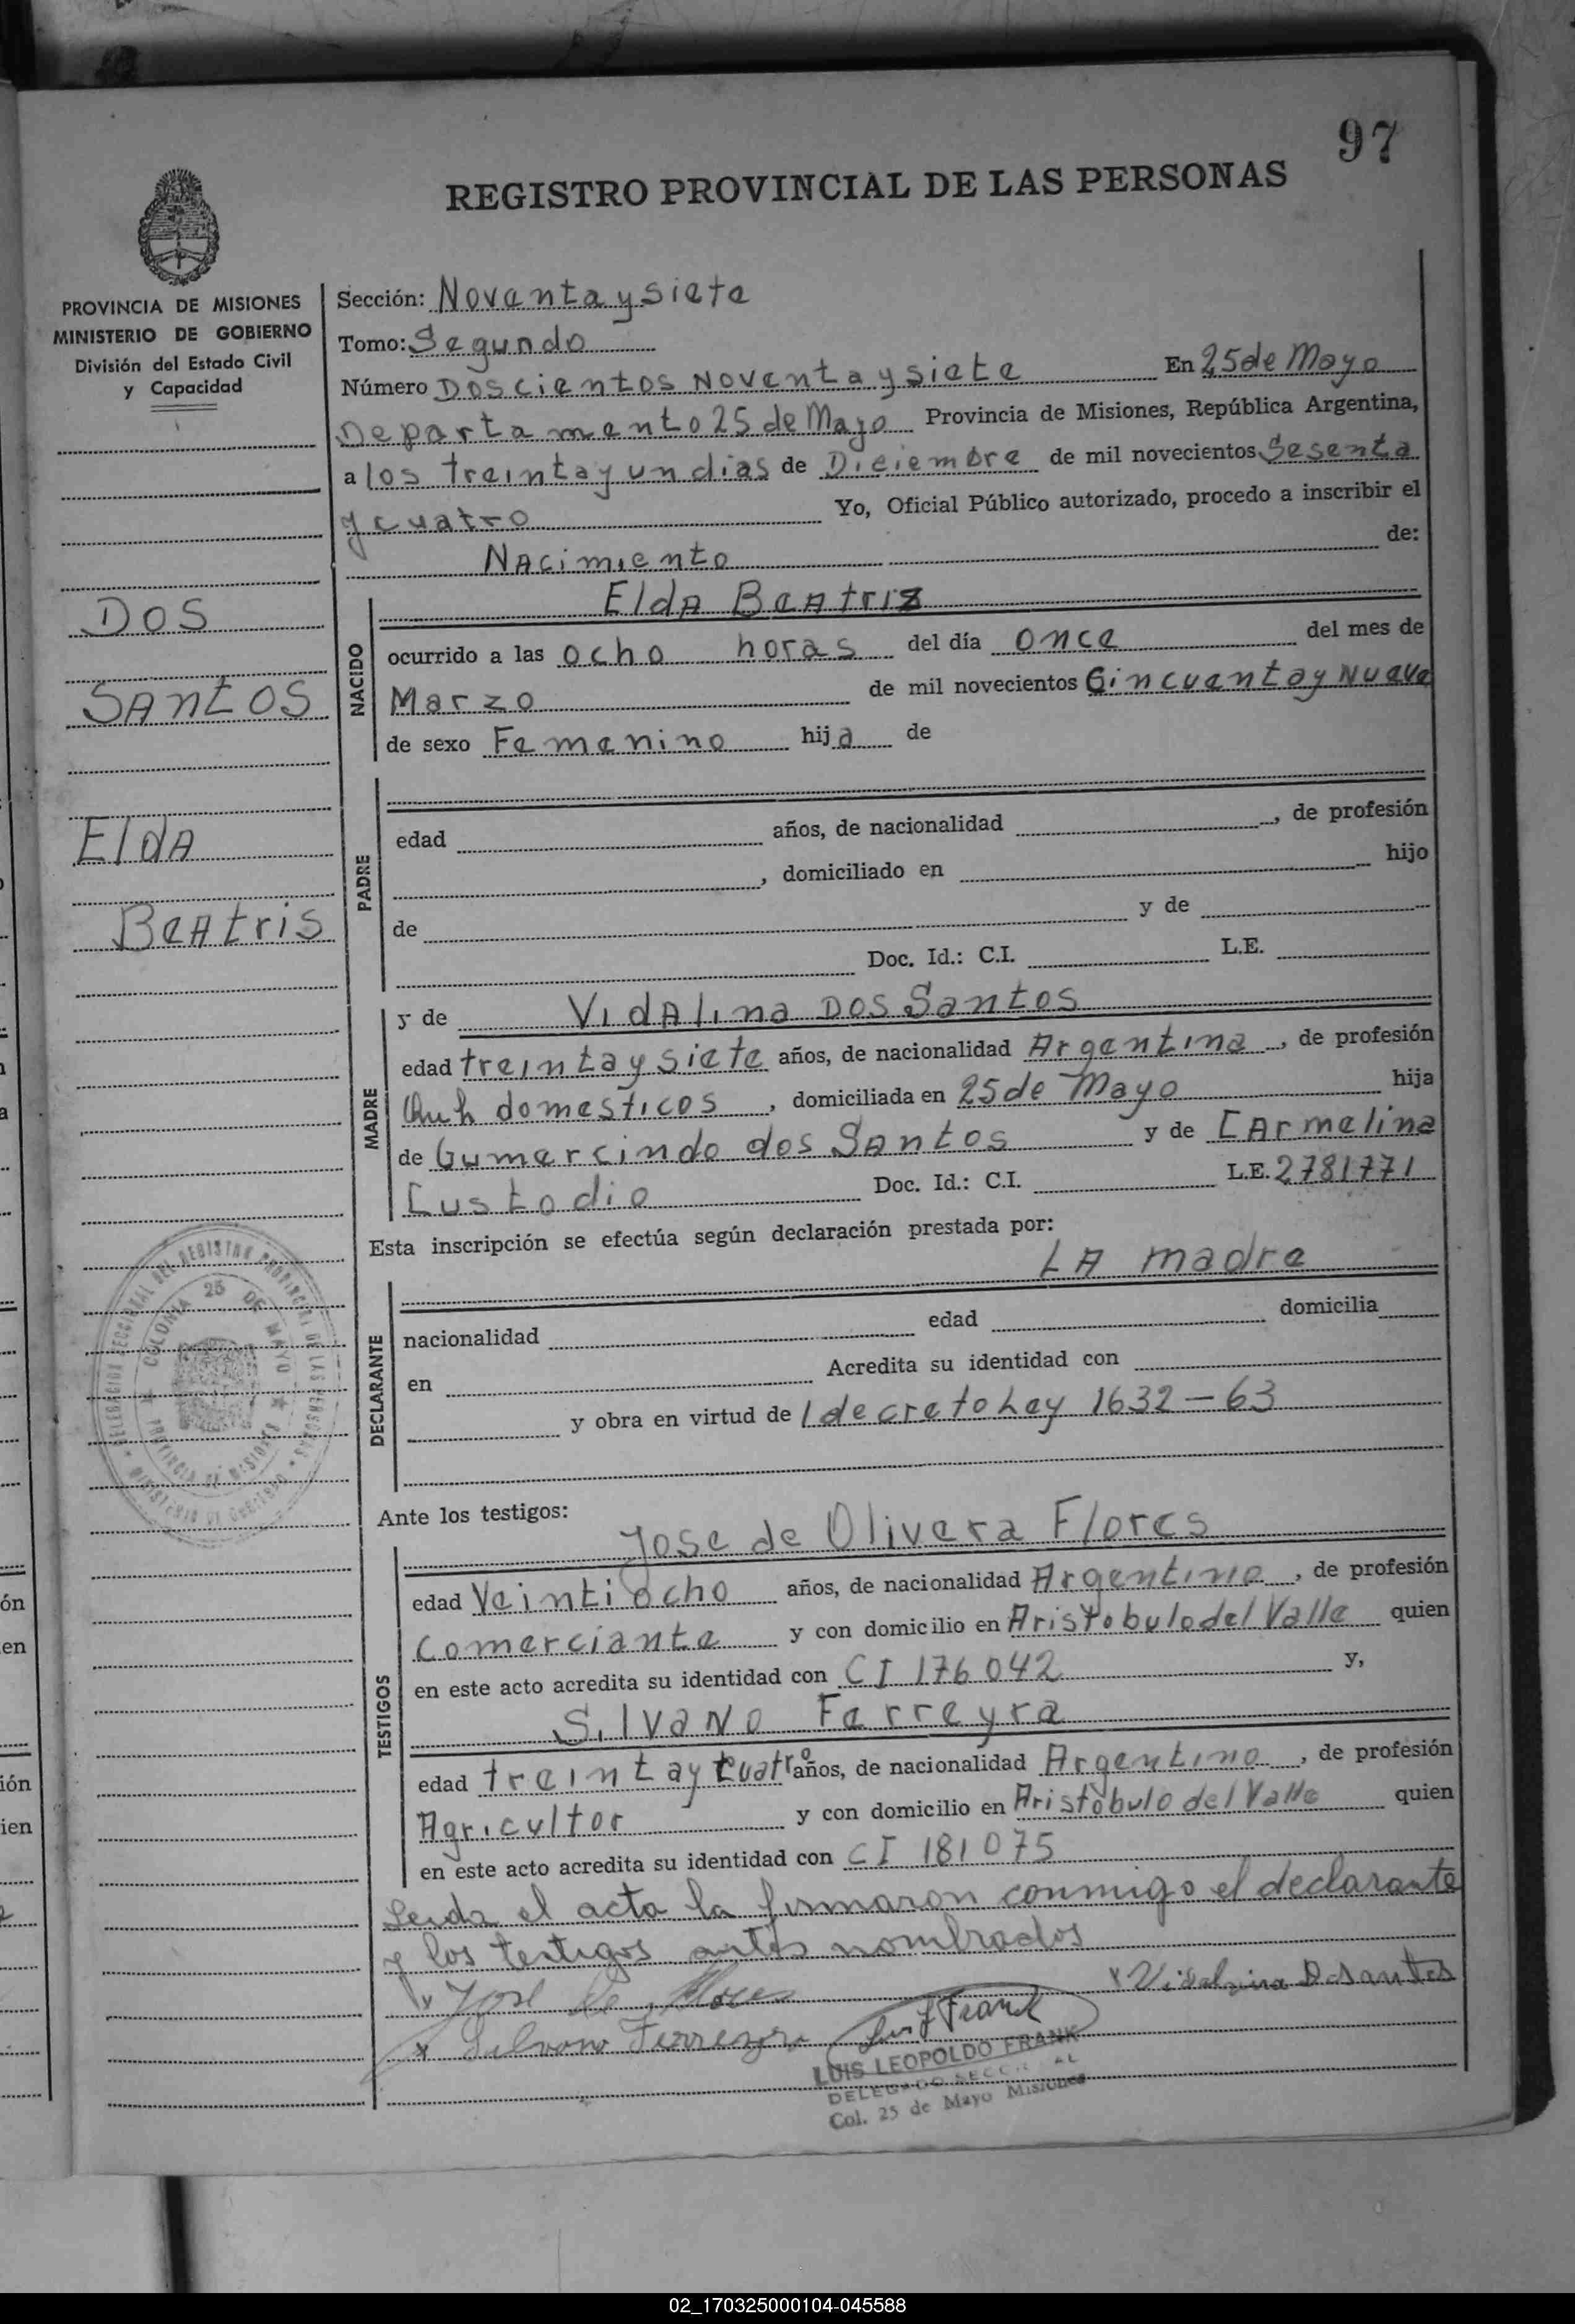 97
REGISTRO PROVINCIAL DE LAS PERSONAS
PROVINCIA DE MISIONES
MINISTERIO DE GOBIERNO
División del Estado Civil
y Capacidad
DOS
SANTOS
Elda
Beatris
Sección: Noventa y siete
Tomo: Segundo
Número Doscientos Noventa y siete En 25 de Mayo
Departamento 25 de Mayo Provincia de Misiones, República Argentina,
a los treinta y un dias de Diciembre de mil novecientos Sesenta
y cuatro Yo, Oficial Público autorizado, procedo a inscribir el
Nacimiento de:
NACIDO
Elda Beatriz
ocurrido a las ocho horas del día once del mes de
Marzo de mil novecientos Cincuenta y Nueve
de sexo Femenino hija de
PADRE
edad años, de nacionalidad , de profesión
, domiciliado en hijo
de y de
Doc. Id.: C.I. L.E.
MADRE
y de Vidalina Dos Santos
edad treinta y siete años, de nacionalidad Argentina, de profesión
domesticos, domiciliada en 25 de Mayo hija
de Gumercindo dos Santos y de Carmelina
Custodio Doc. Id.: C.I. L.E. 2781771
Esta inscripción se efectúa según declaración prestada por:
LA madre
DECLARANTE
nacionalidad edad domicilia
en Acredita su identidad con
y obra en virtud de l decreto Ley 1632-63
Ante los testigos:
TESTIGOS
Jose de Olivera Flores
edad Veintiocho años, de nacionalidad Argentino, de profesión
Comerciante y con domicilio en Aristobulo del Valle quien
en este acto acredita su identidad con CI 176042 y,
Silvano Ferreyra
edad treinta y cuatro años, de nacionalidad Argentino, de profesión
Agricultor y con domicilio en Aristobulo del Valle quien
en este acto acredita su identidad con CI 181075
Leida el acta la firmaron conmigo el declarante
y los testigos antes nombrados
x Jose de Flores x Vidalina D Santos
x Silvano Ferreyra Luis L Frank
LUIS LEOPOLDO FRANK
DELEGADO SECCIONAL
Col. 25 de Mayo Misiones
DELEGACION SECCIONAL DEL REGISTRO PROVINCIAL DE LAS PERSONAS
MINISTERIO DE GOBIERNO
COLONIA 25 DE MAYO
PROVINCIA DE MISIONES
ón
en
ión
ien
02_170325000104-045588